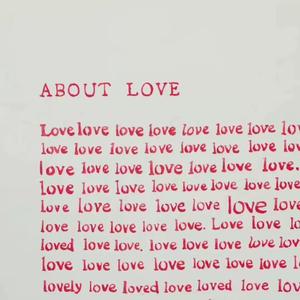 ABOUT LOVE
Love love love love love love love lov
love love love love love love love love
love love love love love love love.
love love love love love love love love
love love love love love love love
love love love love love. Love love lo
loved love love. love love love love love
love love love love love love love lo
lovely love loved love loved love lov